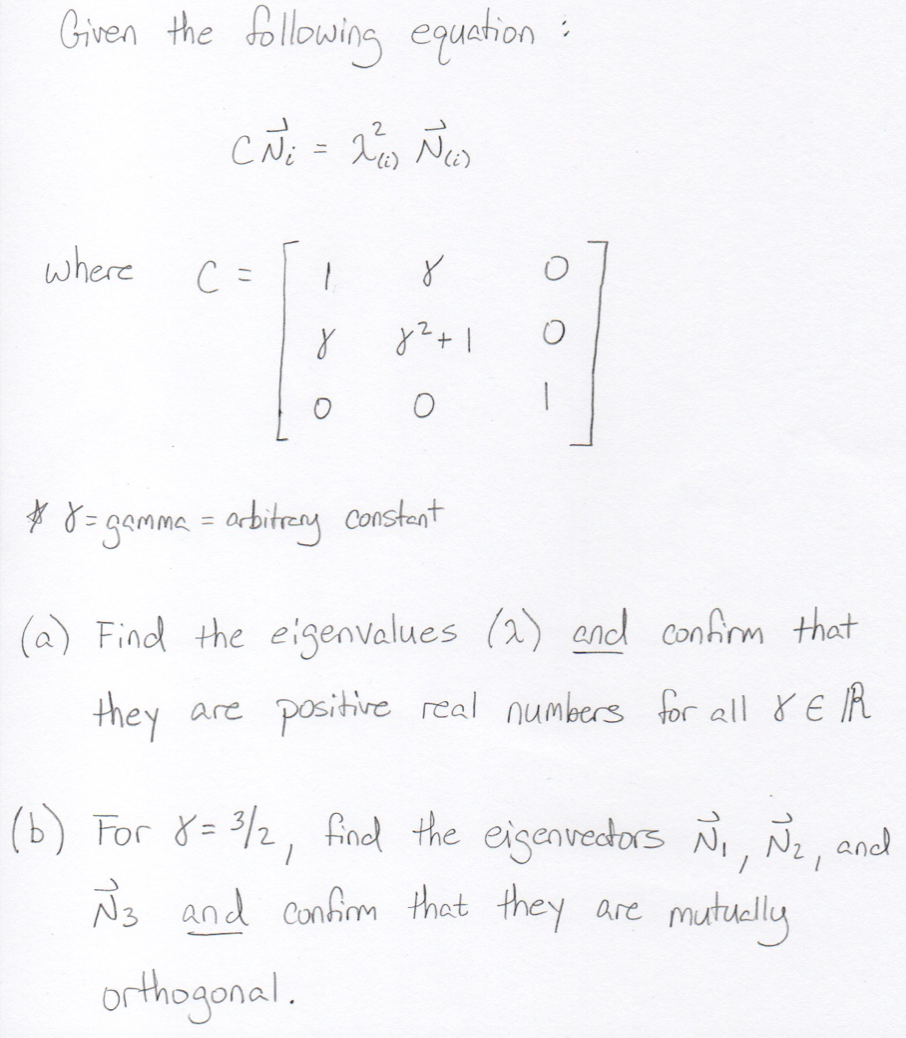 Given the following equation :
C N⃗i = λ²(i) N⃗(i)
where C = [ 1 γ 0
γ γ²+1 0
0 0 1 ]
* γ = gamma = arbitrary constant
(a) Find the eigenvalues (λ) and confirm that
they are positive real numbers for all γ ∈ ℝ
(b) For γ = 3/2, find the eigenvectors N⃗1, N⃗2, and
N⃗3 and confirm that they are mutually
orthogonal.